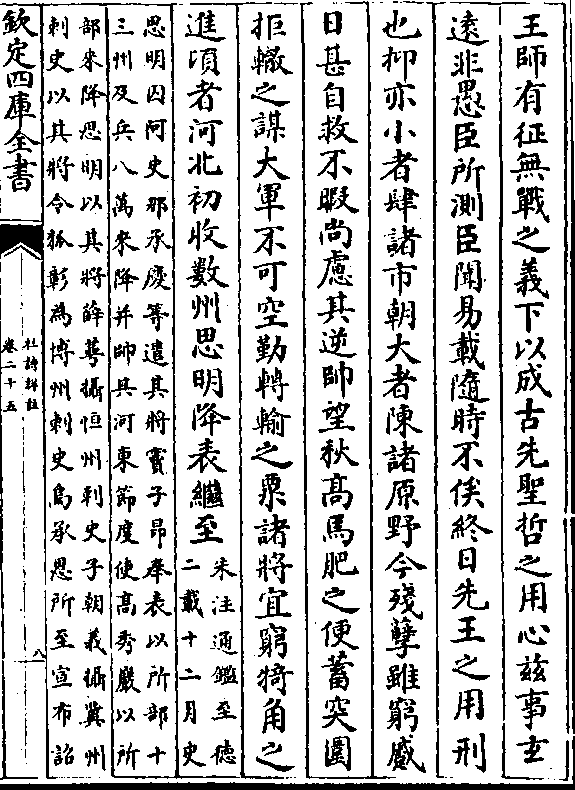 王師有征無戰之義下以成古先聖哲之用心兹事玄
遠非愚臣所測臣聞易載隨時不俟終日先王之用刑
也抑亦小者肆諸市朝大者陳諸原野今殘孽雖窮蹙
日甚自救不暇尚慮其逆帥望秋髙馬肥之便蓄突圍
拒轍之謀大軍不可空勤轉輸之粟諸將宜窮犄角之
進頃者河北初收數州思明降表繼至
朱注通鑑至徳
二載十二月史
思明囚阿史那承慶等遣其將竇子昂奉表以所部十
三州及兵八萬來降并帥其河東節度使髙秀巖以所
部來降思明以其將薛萼攝恒州刺史子朝義攝冀州
刺史以其將令狐彰為博州刺史烏承恩所至宣布詔
欽定四庫全書
杜詩詳註
卷二十五
八